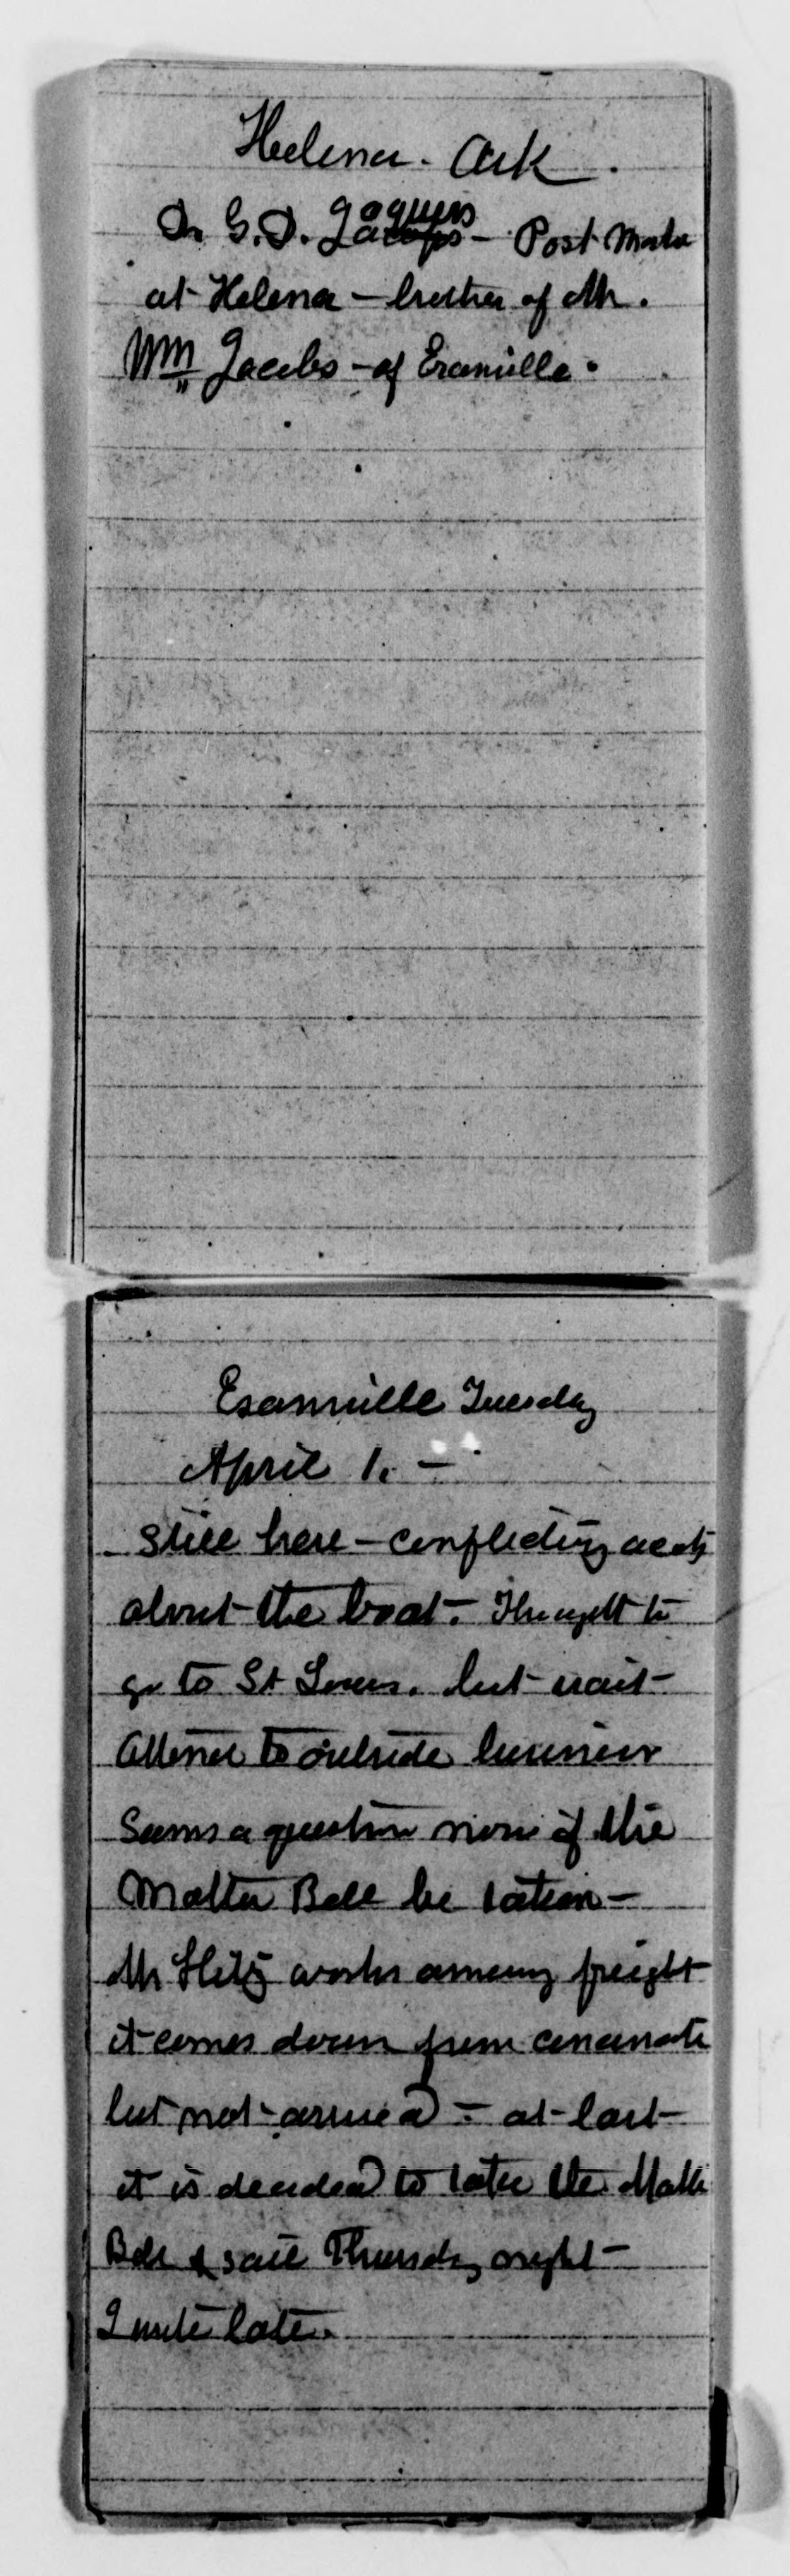 Helena. Ark.
Dr G. D. Jaquess – Post Master
at Helena – brother of Mr.
Wm Jacobs – of Evansville.
Evansville Tuesday
April 1. –
Still here – conflicting accts
about the boat – Thought to
go to St Louis. but wait –
Attend to outside business
Seems a question now if the
Mattie Bell be taken –
Mr Hitz works among freight
it comes down from Cincinnati
but not arrived – at last –
it is decided to take the Mattie
Bell & sail Thursday night –
I write late.